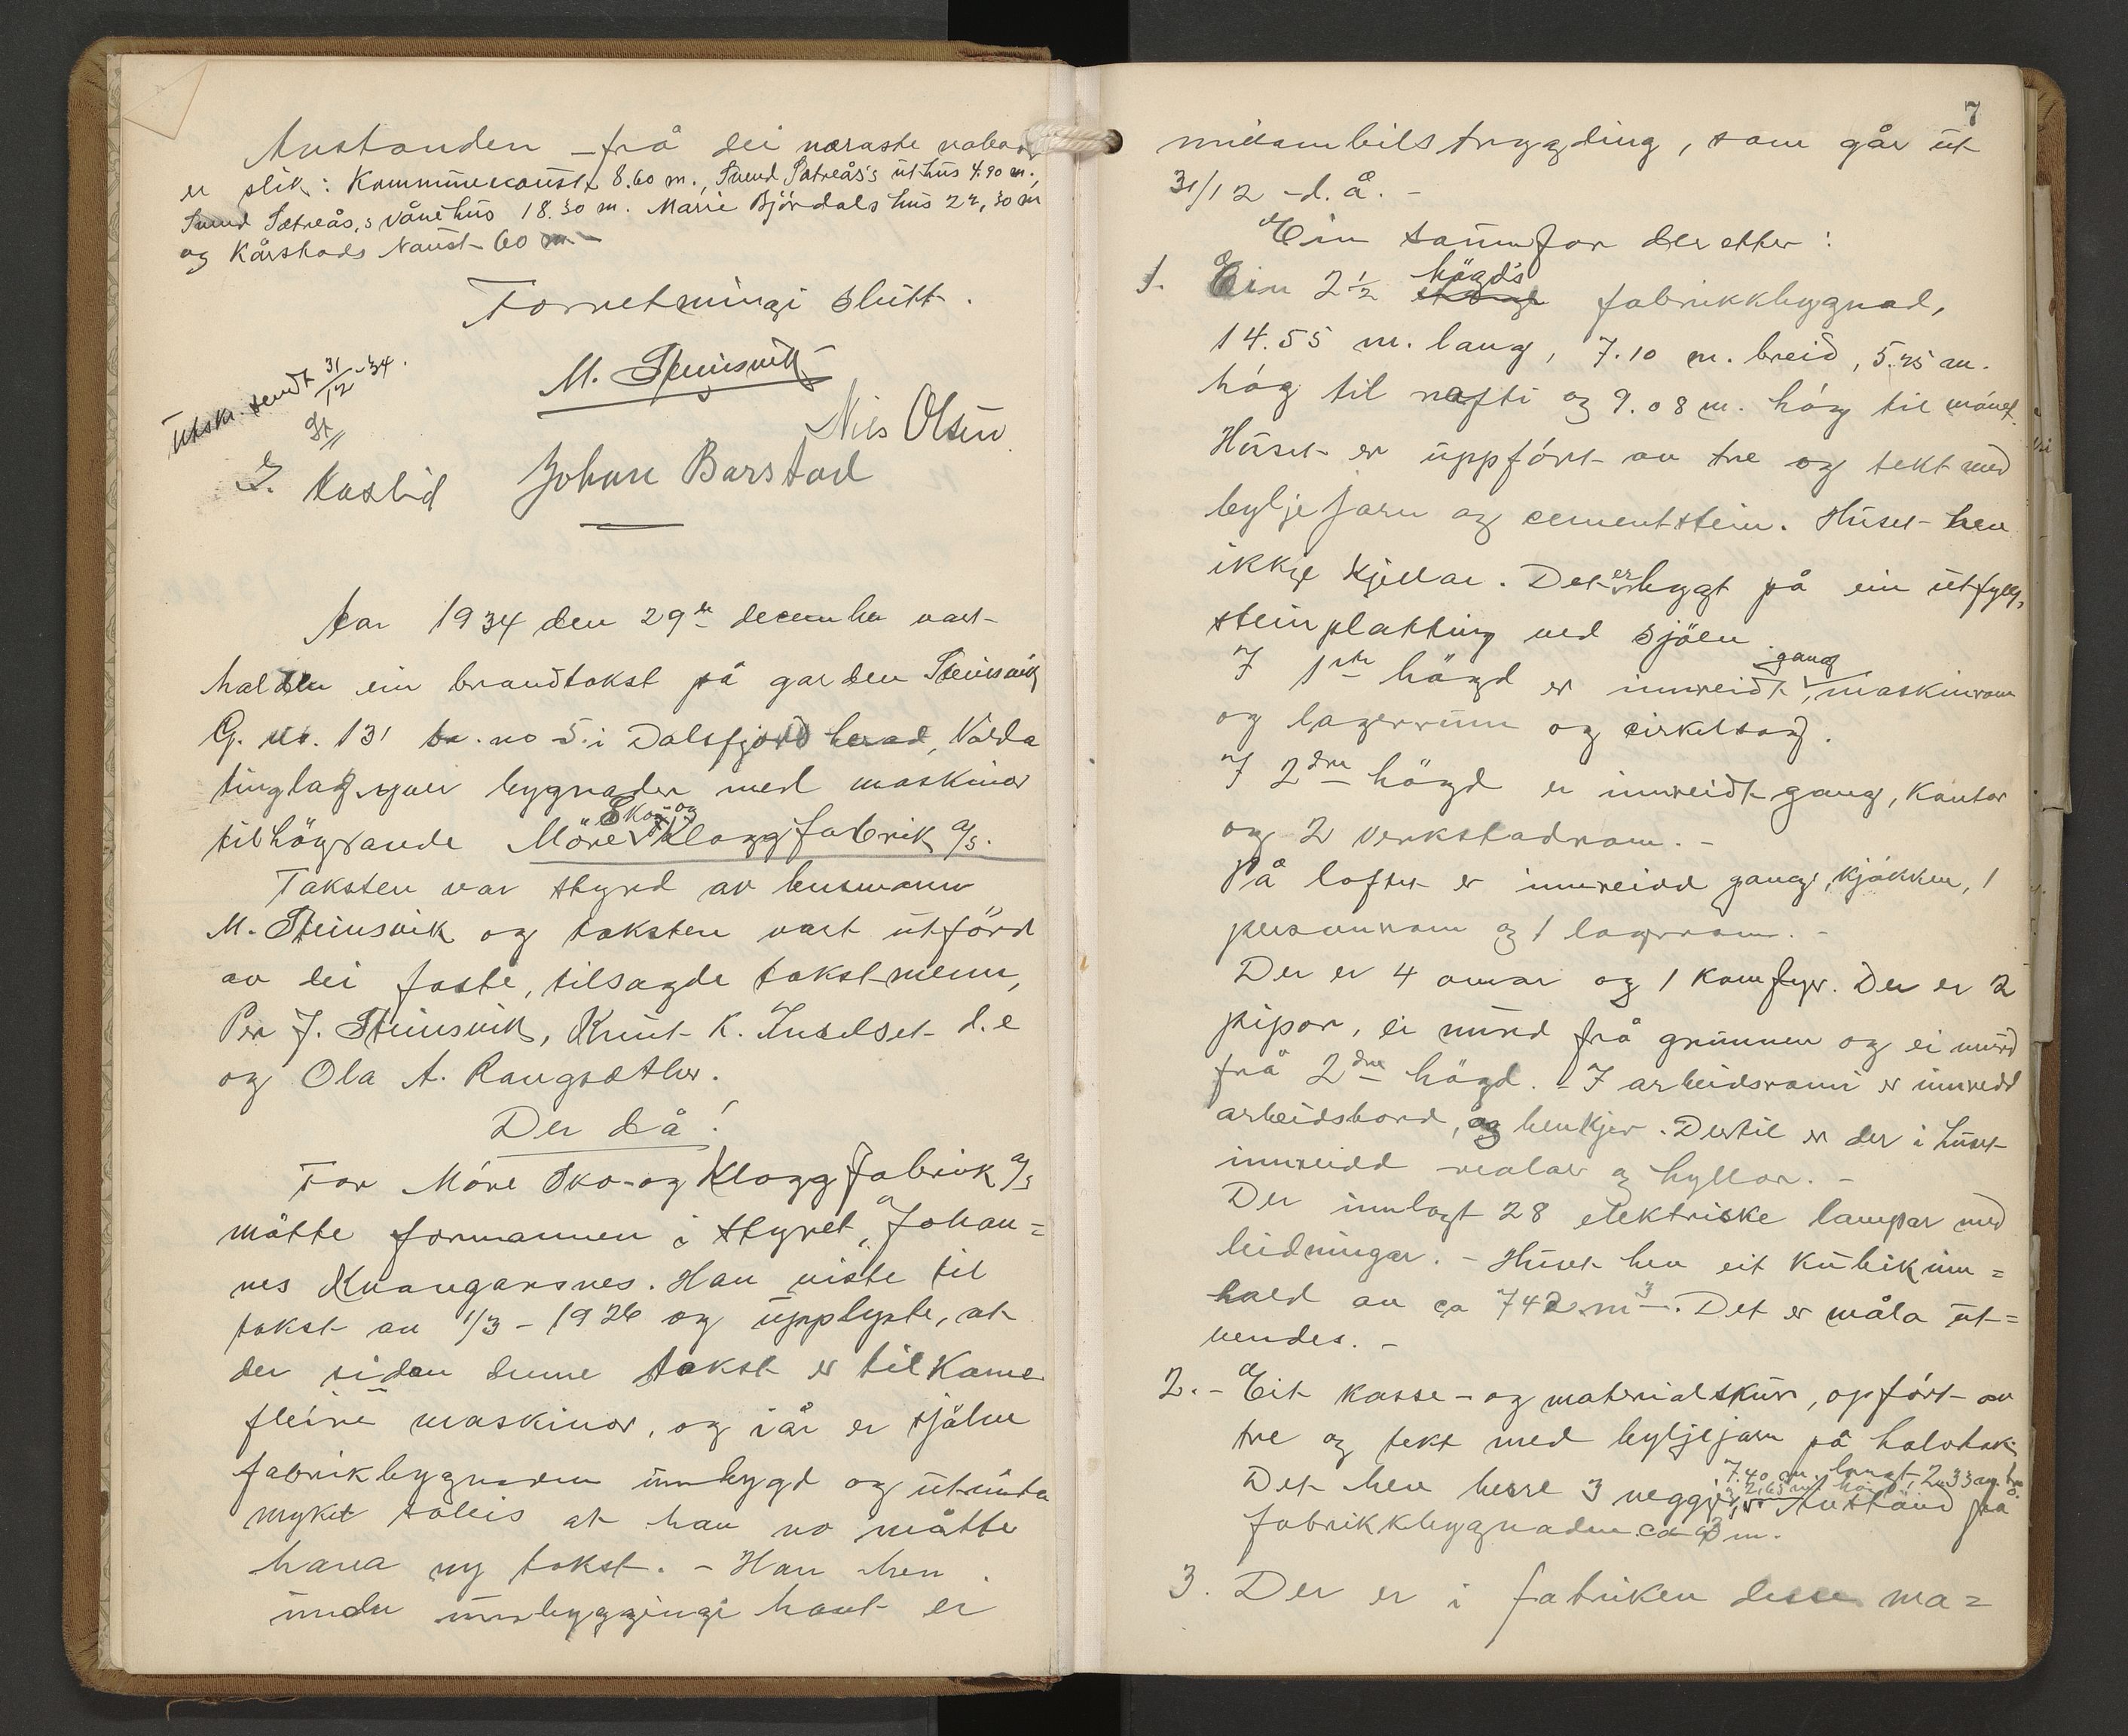 Anstanden frå dei næraste naboar
er slik: Kommunenaust 8.60 m., Svend Sætreås's uthus 4.90 m.,
Svend Sætreås,s vånehus 18.30 m. Marie Bjørdals hus 22,30 m
og Kårstads Naust 60 m
Forretningi slutt.
Utskr. sendt 31/12-34.
M. Steinsvik
Nils Olsen
J. Kaslid Johan Barstad
Aar 1934 den 29de decembe vart
halden ein brandtakst på garden Steinsvik
G. nr. 131 br. no 5 i Dalsfjord herad, Volda
tinglag yver bygnader med maskinor
Sko- og
tilhøyrande Möre Kloggfabrik a/s.
Taksten var styrd av lensmann
M. Steinsvik og taksten vart utförd
av dei faste, tilsagde takstmenn,
Per J. Steinsvik, Knut K. Inselset d.e
og Ola A. Rangsæther.
Der då!
For Möre Sko- og Kloggfabrik a/s
møtte formannen i styret, Johan=
nes Kvangarsnes. Han viste til
takst av 1/3-1926 og upplyste, at
der sidan denne takst er tilkome
fleire maskinor, og iår er sjølve
fabrikbygnaden umbygd og utvida
myket soleis at han no måtte
hava ny takst. - Han hev
under umbyggjingi havt ei
7
midambilstrygding, som går ut
31/12 d.å. -
Ein taum for der etter:
högd's
1. Ein 2½ etange fabrikkbygnad,
14.55 m. lang, 7.10 m. breid, 5.25 m.
høg til rafti og 9.08 m. høg til mönet.
Huset er uppført av tre og tekt med
bylgjejarn og cementstein. Huset hev
ikkje kjellar. Det er bygt på ein utfyllt
steinplatting ved sjöen
gang
I 1ste högd er innreidt, maskinrom
og lagerrum og cirkelsag.
I 2dre högd er innreidt gang, kontor
og 2 verkstadrom. -
På loftet er innreidd gang, kjøkken, 1
personrom og 1 lagerrom. -
Der er 4 omnar og 1 komfyr. Der er 2
pipor, ei murd frå grunnen og ei murd
frå 2dre högd. - I arbeidsromi er innredd
arbeidsbord, og benkjer. Dertil er der i huset
innreidd realar og hyllor. -
Der innlagt 28 elektriske lampar med
leidningar. - Huset hev eit kubikinn=
hald av ca 742 m3. Det er måla ut=
vendes. -
2. - Eit kasse- og materialskur, opført av
tre og tekt med bylgjejarn på halvtak.
7.40 m. langt, 2.33 m. br.
2,65 m. høi
Det hev berre 3 veggjer. Avstand frå
fabrikkbygnaden ca 3 m.
3. Der er i fabriken desse ma=